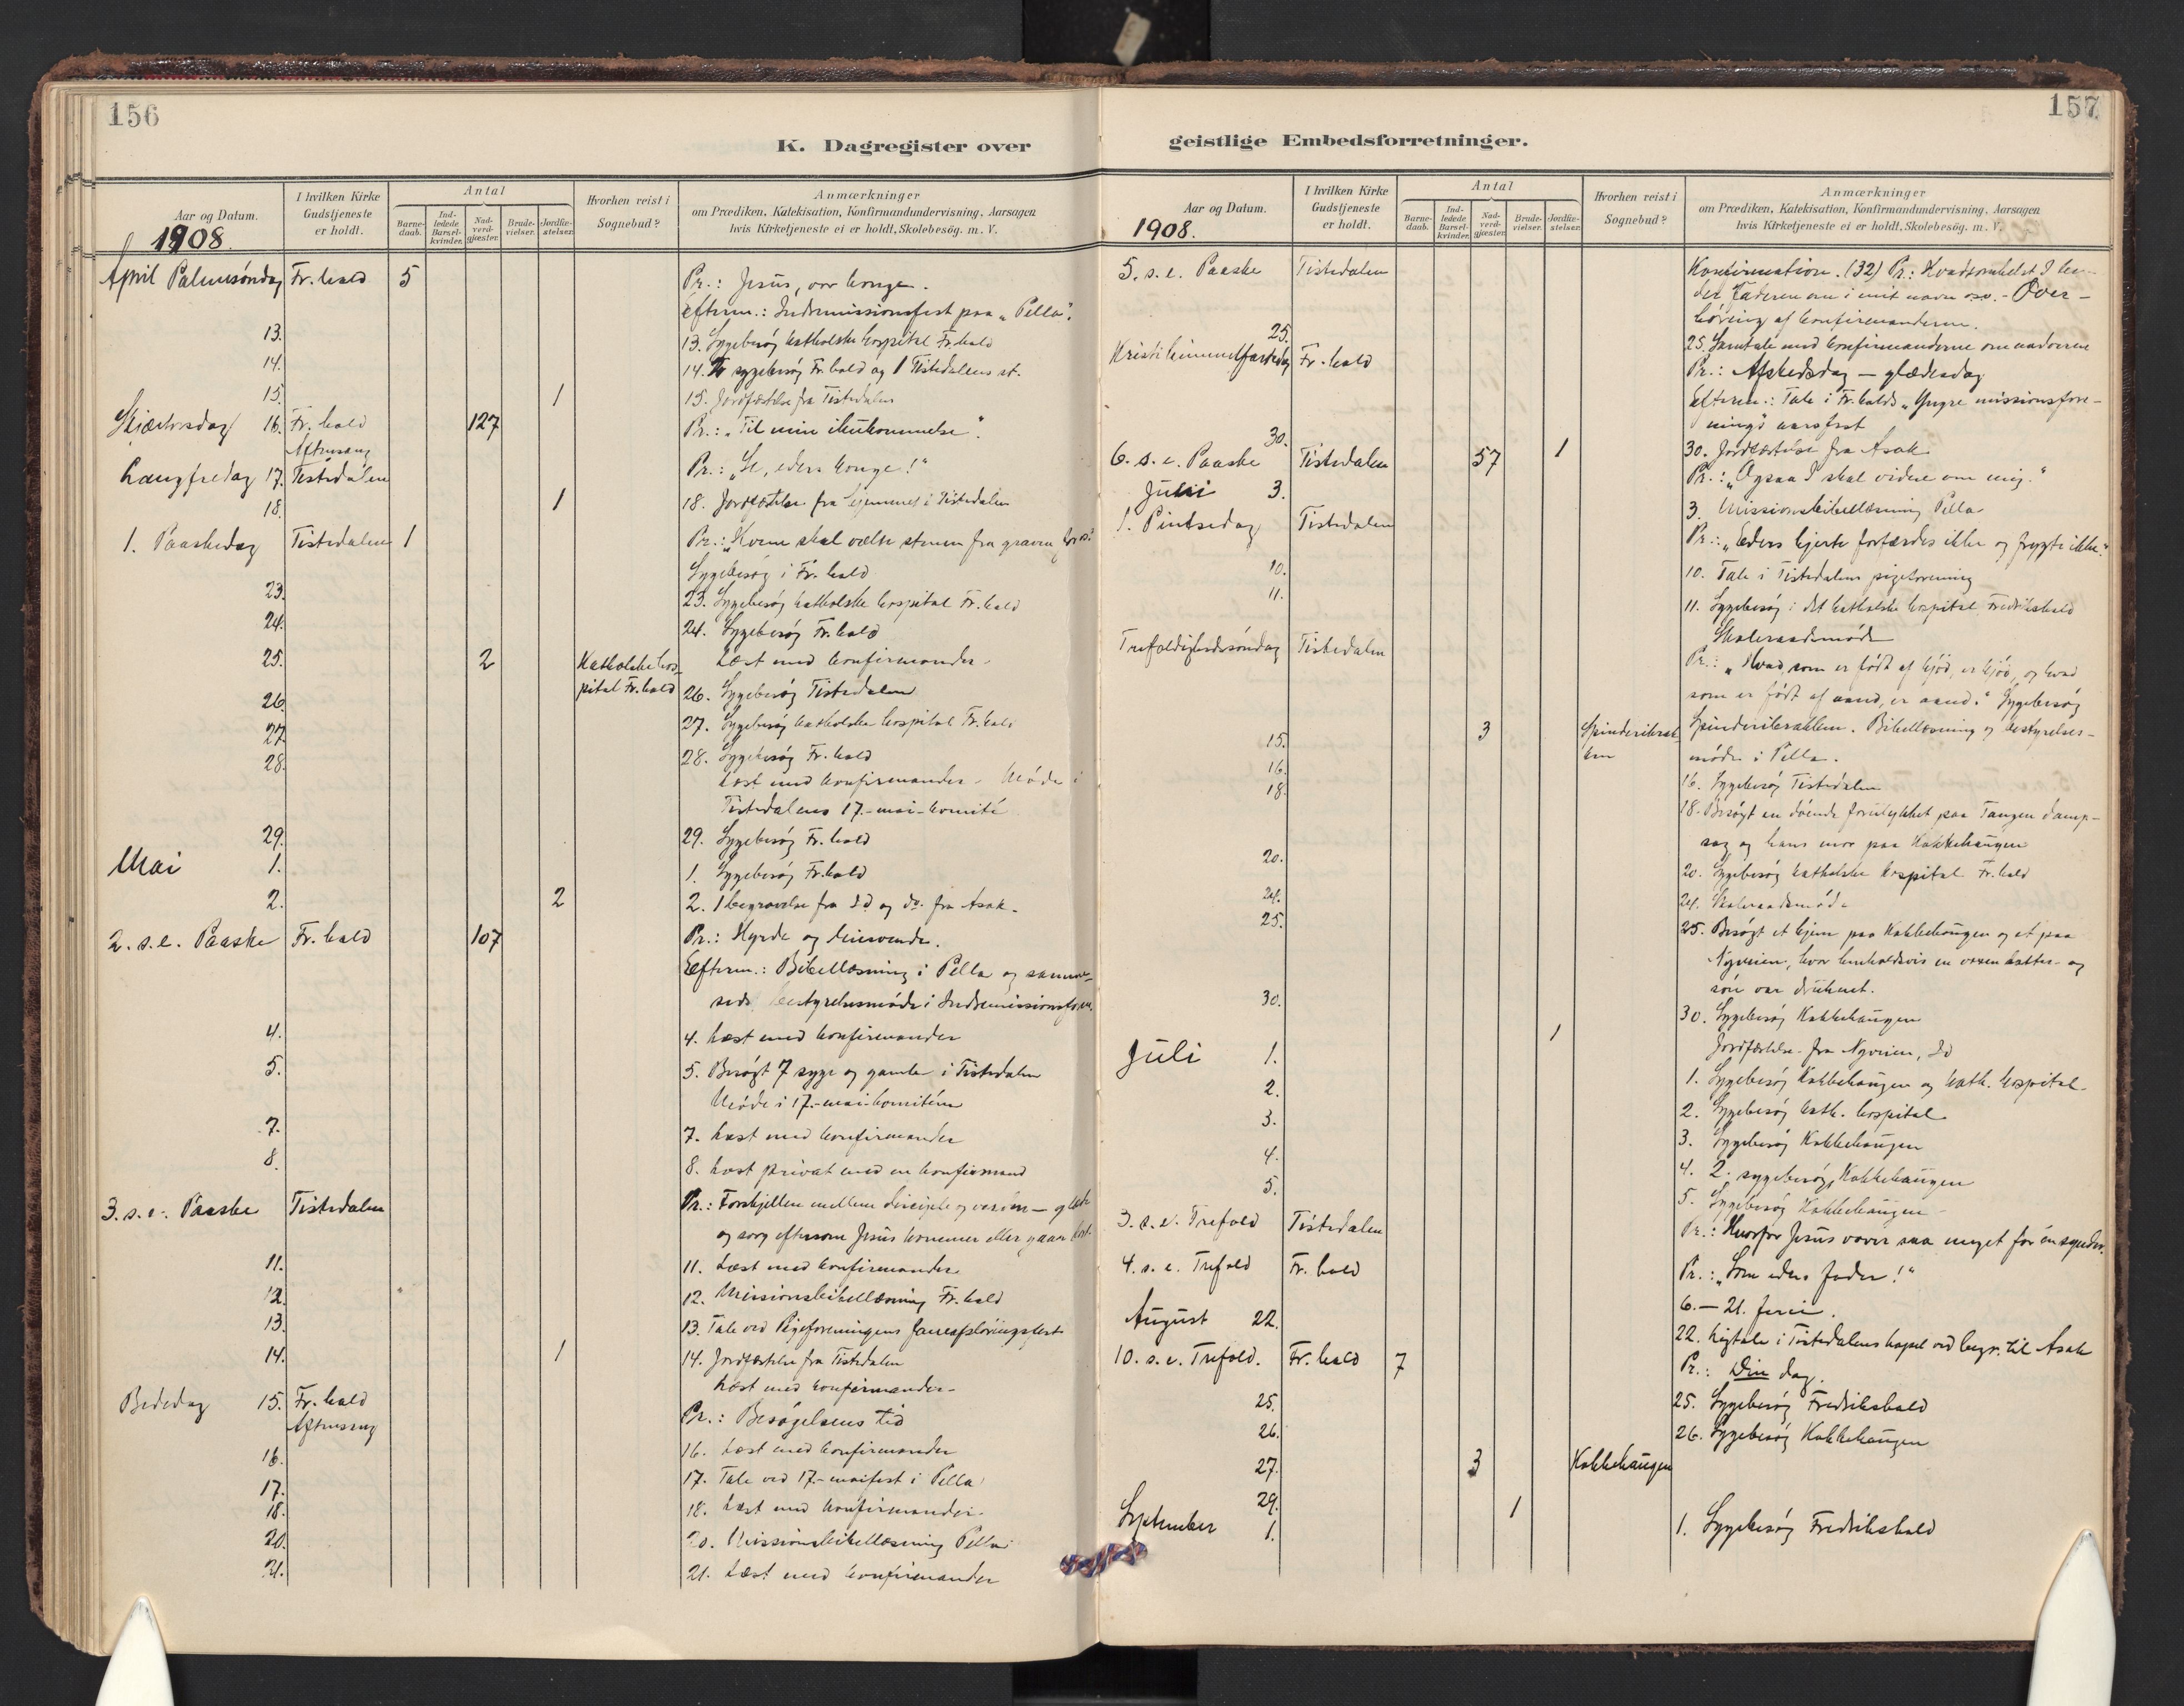 156
K. Dagregister over
Aar og Datum.
I hvilken Kirke Gudstjeneste er holdt.
Antal
Barne-daab.
Ind-ledede Barsel-kvinder.
Nad-verd-gjæster.
Brude-vielser.
Jordfæ-stelser.
Hvorhen reist i Sognebud?
Anmærkninger
om Prædiken, Katekisation, Konfirmandundervisning, Aarsagen
hvis Kirketjeneste ei er holdt, Skolebesög. m. V.
1908.
April Palmesøndag Fr.hald 5 Pr.: Jesus, vor konge.
Efterm.: Indremissionsfest paa "Pella".
13. 13. Sygebesøg katholske hospital Fr.hald
14. 14. To sygebesøg Fr.hald og 1 Tistedalens st.
15. 1 15. Jordfæstelse fra Tistedalen
Skjærtorsdag 16. Fr.hald 127 Pr.: "Til min ihukommelse".
Aftensang
Langfredag 17. Tistedalen Pr.: "Se, eders konge!"
18. 1 18. Jordfæstelse fra hjemmet i Tistedalen
1. Paaskedag Tistedalen 1 Pr.: "Hvem skal vælte stenen fra graven for os?
Sygebesøg i Fr.hald
23. 23. Sygebesøg katholske hospital Fr.hald
24. 24. Sygebesøg Fr.hald
25. 2 Katholske hos- Læst med konfirmander.
pital Fr.hald
26. 26. Sygebesøg Tistedalen
27. 27. Sygebesøg katholske hospital Fr.hald
28. 28. Sygebesøg Fr.hald
Læst med konfirmander. Møde i
Tistedalens 17.-mai-komité
29. 29. Sygebesøg Fr.hald
Mai 1. 1. Sygebesøg Fr.hald
2. 2 2. 1 begravelse fra Id og do. fra Asak.
2. s. e. Paaske Fr.hald 107 Pr.: Hyrde og leiesvende.
Efterm.: Bibellæsning i Pella og samme-
steds bestyrelsesmøde i Indremissionsforen.
4. 4. Læst med konfirmander
5. 5. Besøgt 7 syge og gamle i Tistedalen
Møde i 17.-mai-komitéen
7. 7. Læst med konfirmander
8. 8. Læst privat med en konfirmand
3. s. e. Paaske Tistedalen Pr.: Forskjellen mellem disciple og verden — glæde
og sorg eftersom Jesus kommer eller gaar bort.
11. 11. Læst med konfirmander.
12. 12. Missionsbibellæsning Fr.hald
13. 13. Tale ved Pigeforeningens
14. 1 14. Jordfæstelse fra Tistedalen
Læst med konfirmander.
Bededag 15. Fr.hald Pr.: Besøgelsens tid
Aftensang
16. 16. Læst med konfirmander
17. 17. Tale ved 17.-maifest i Pella
18. 18. Læst med konfirmander.
20. 20. Missionsbibellæsning Pella
21. 21. Læst med konfirmander
157
geistlige Embedsforretninger.
Aar og Datum.
I hvilken Kirke Gudstjeneste er holdt.
Antal
Barne-daab.
Ind-ledede Barsel-kvinder.
Nad-verd-gjæster.
Brude-vielser.
Jordfæ-stelser.
Hvorhen reist i Sognebud?
Anmærkninger
om Prædiken, Katekisation, Konfirmandundervisning, Aarsagen
hvis Kirketjeneste ei er holdt, Skolebesög. m. V.
1908.
5. s. e. Paaske Tistedalen Konfirmation. (32) Pr.: Hvadsomhelst I be-
der Faderen om i mit navn osv. - Over-
høring af konfirmanderne.
25. 25. Samtale med konfirmanderne om nadveren
Kristi himmelfartsdag Fr.hald Pr.: Afskedsdag — glædesdag
Efterm.: Tale i Fr.halds "Yngre missionsfore-
nings" aarsfest
30. 30. Jordfæstelse fra Asak
6. s. e. Paaske Tistedalen 57 1 Pr.: "Ogsaa I skal vidne om mig."
Juni 3. 3. Missionsbibellæsning Pella
1. Pintsedag Tistedalen Pr.: "Eders hjerte forfærdes ikke og frygte ikke."
10. 10. Tale i Tistedalens pigeforening
11. 11. Sygebesøg i det katholske hospital Fredrikshald
Skoleraadsmøde
Trefoldighedssøndag Tistedalen Pr.: "Hvad som er født af kjød, er kjød, og hvad
som er født af aand, er aand." Sygebesøg
15. 3 Spinderibrak- Spinderibrakken. Bibellæsning og bestyrelses-
ken møde i Pella.
16. 16. Sygebesøg Tistedalen
18. 18. Besøgt en døende forulykket paa Tangen damp-
sag og hans mor paa Kakkehaugen
20. 20. Sygebesøg katholske hospital Fr.hald
24. 24. Skoleraadsmøde
25. 25. Besøgt et hjem paa Kakkehaugen og et paa
Nyveien, hvor henholdsvis en voxen datter og
søn var druknet.
30. 30. Sygebesøg Kakkehaugen
1 Jordfæstelse fra Nyveien, Id
Juli 1. 1. Sygebesøg Kakkehaugen og kath. hospital.
2. 2. Sygebesøg kath. hospital
3. 3. Sygebesøg Kakkehaugen
4. 4. 2 sygebesøg, Kakkehaugen
5. 5. Sygebesøg Kakkehaugen
3. s. e. Trefold Tistedalen Pr.: Hvorfor Jesus vover saa meget for én synder.
4. s. e. Trefold Fr.hald Pr.: "Som eders Fader!"
6.—21. ferie.
August 22. 22. Ligtale i Tistedalens kapel ved begr. til Asak
10. s. e. Trefold. Fr.hald 7 Pr.: Din dag.
25. 25. Sygebesøg Fredrikshald
26. 26. Sygebesøg Kakkehaugen
27. 3 Kakkehaugen
29. 1
September 1. 1. Sygebesøg Fredrikshald